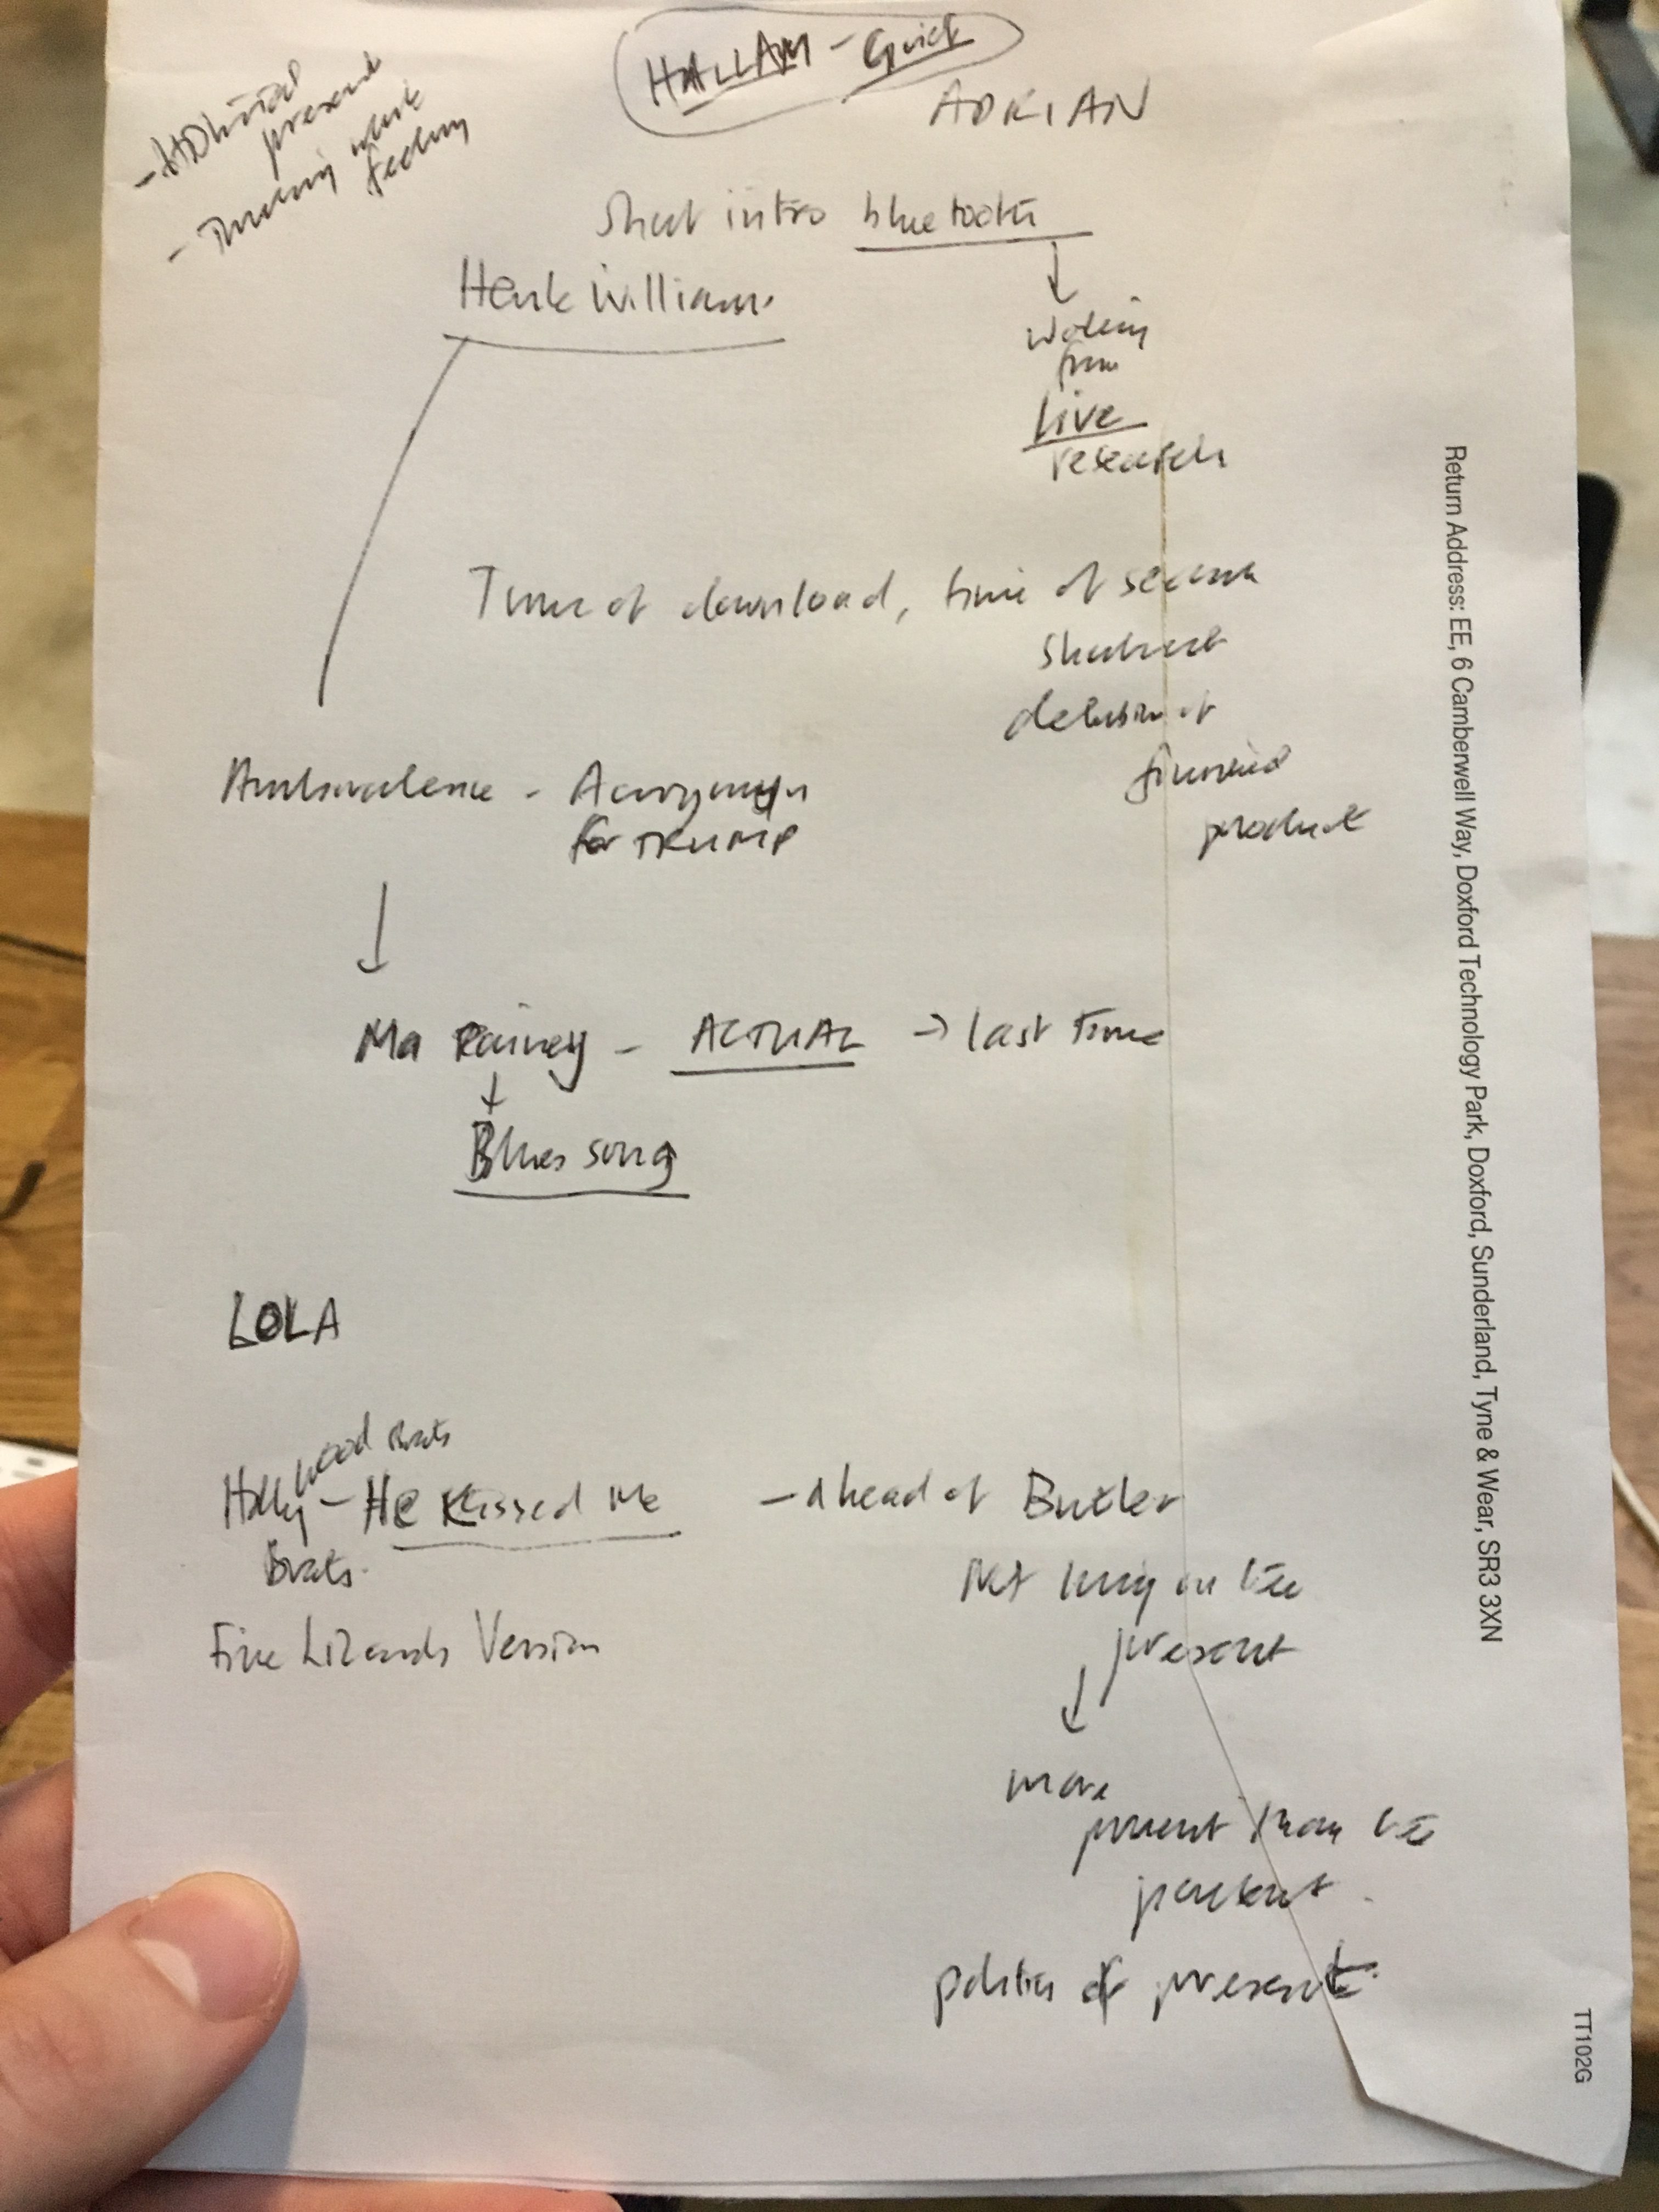 HALLAM - Quick
ADRIAN
present
- Thinking while
feeling
Short intro bluetooth
Hank Williams
from
Live
research
Time of download, time of
delusion of
finished
product
Ambivalence - Acronym
for TRUMP
Ma Rainey - ACTUAL → last time
Blues song
LOLA
Hollywood Brats
Holly - He Kissed Me - ahead of Butler
Brats.
Not living in the
present
Fine Lizards Version
more
present than the
present.
politics of present.
Return Address: EE, 6 Camberwell Way, Doxford Technology Park, Doxford, Sunderland, Tyne & Wear, SR3 3XN
TT102G